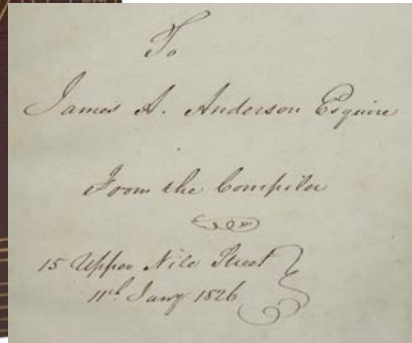 To
James A. Anderson Esquire
From the Compiler
15 Upper Nile Street
11th Jany 1826